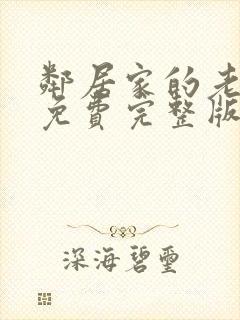 鄰居家的老
免費完整版
深海碧璽